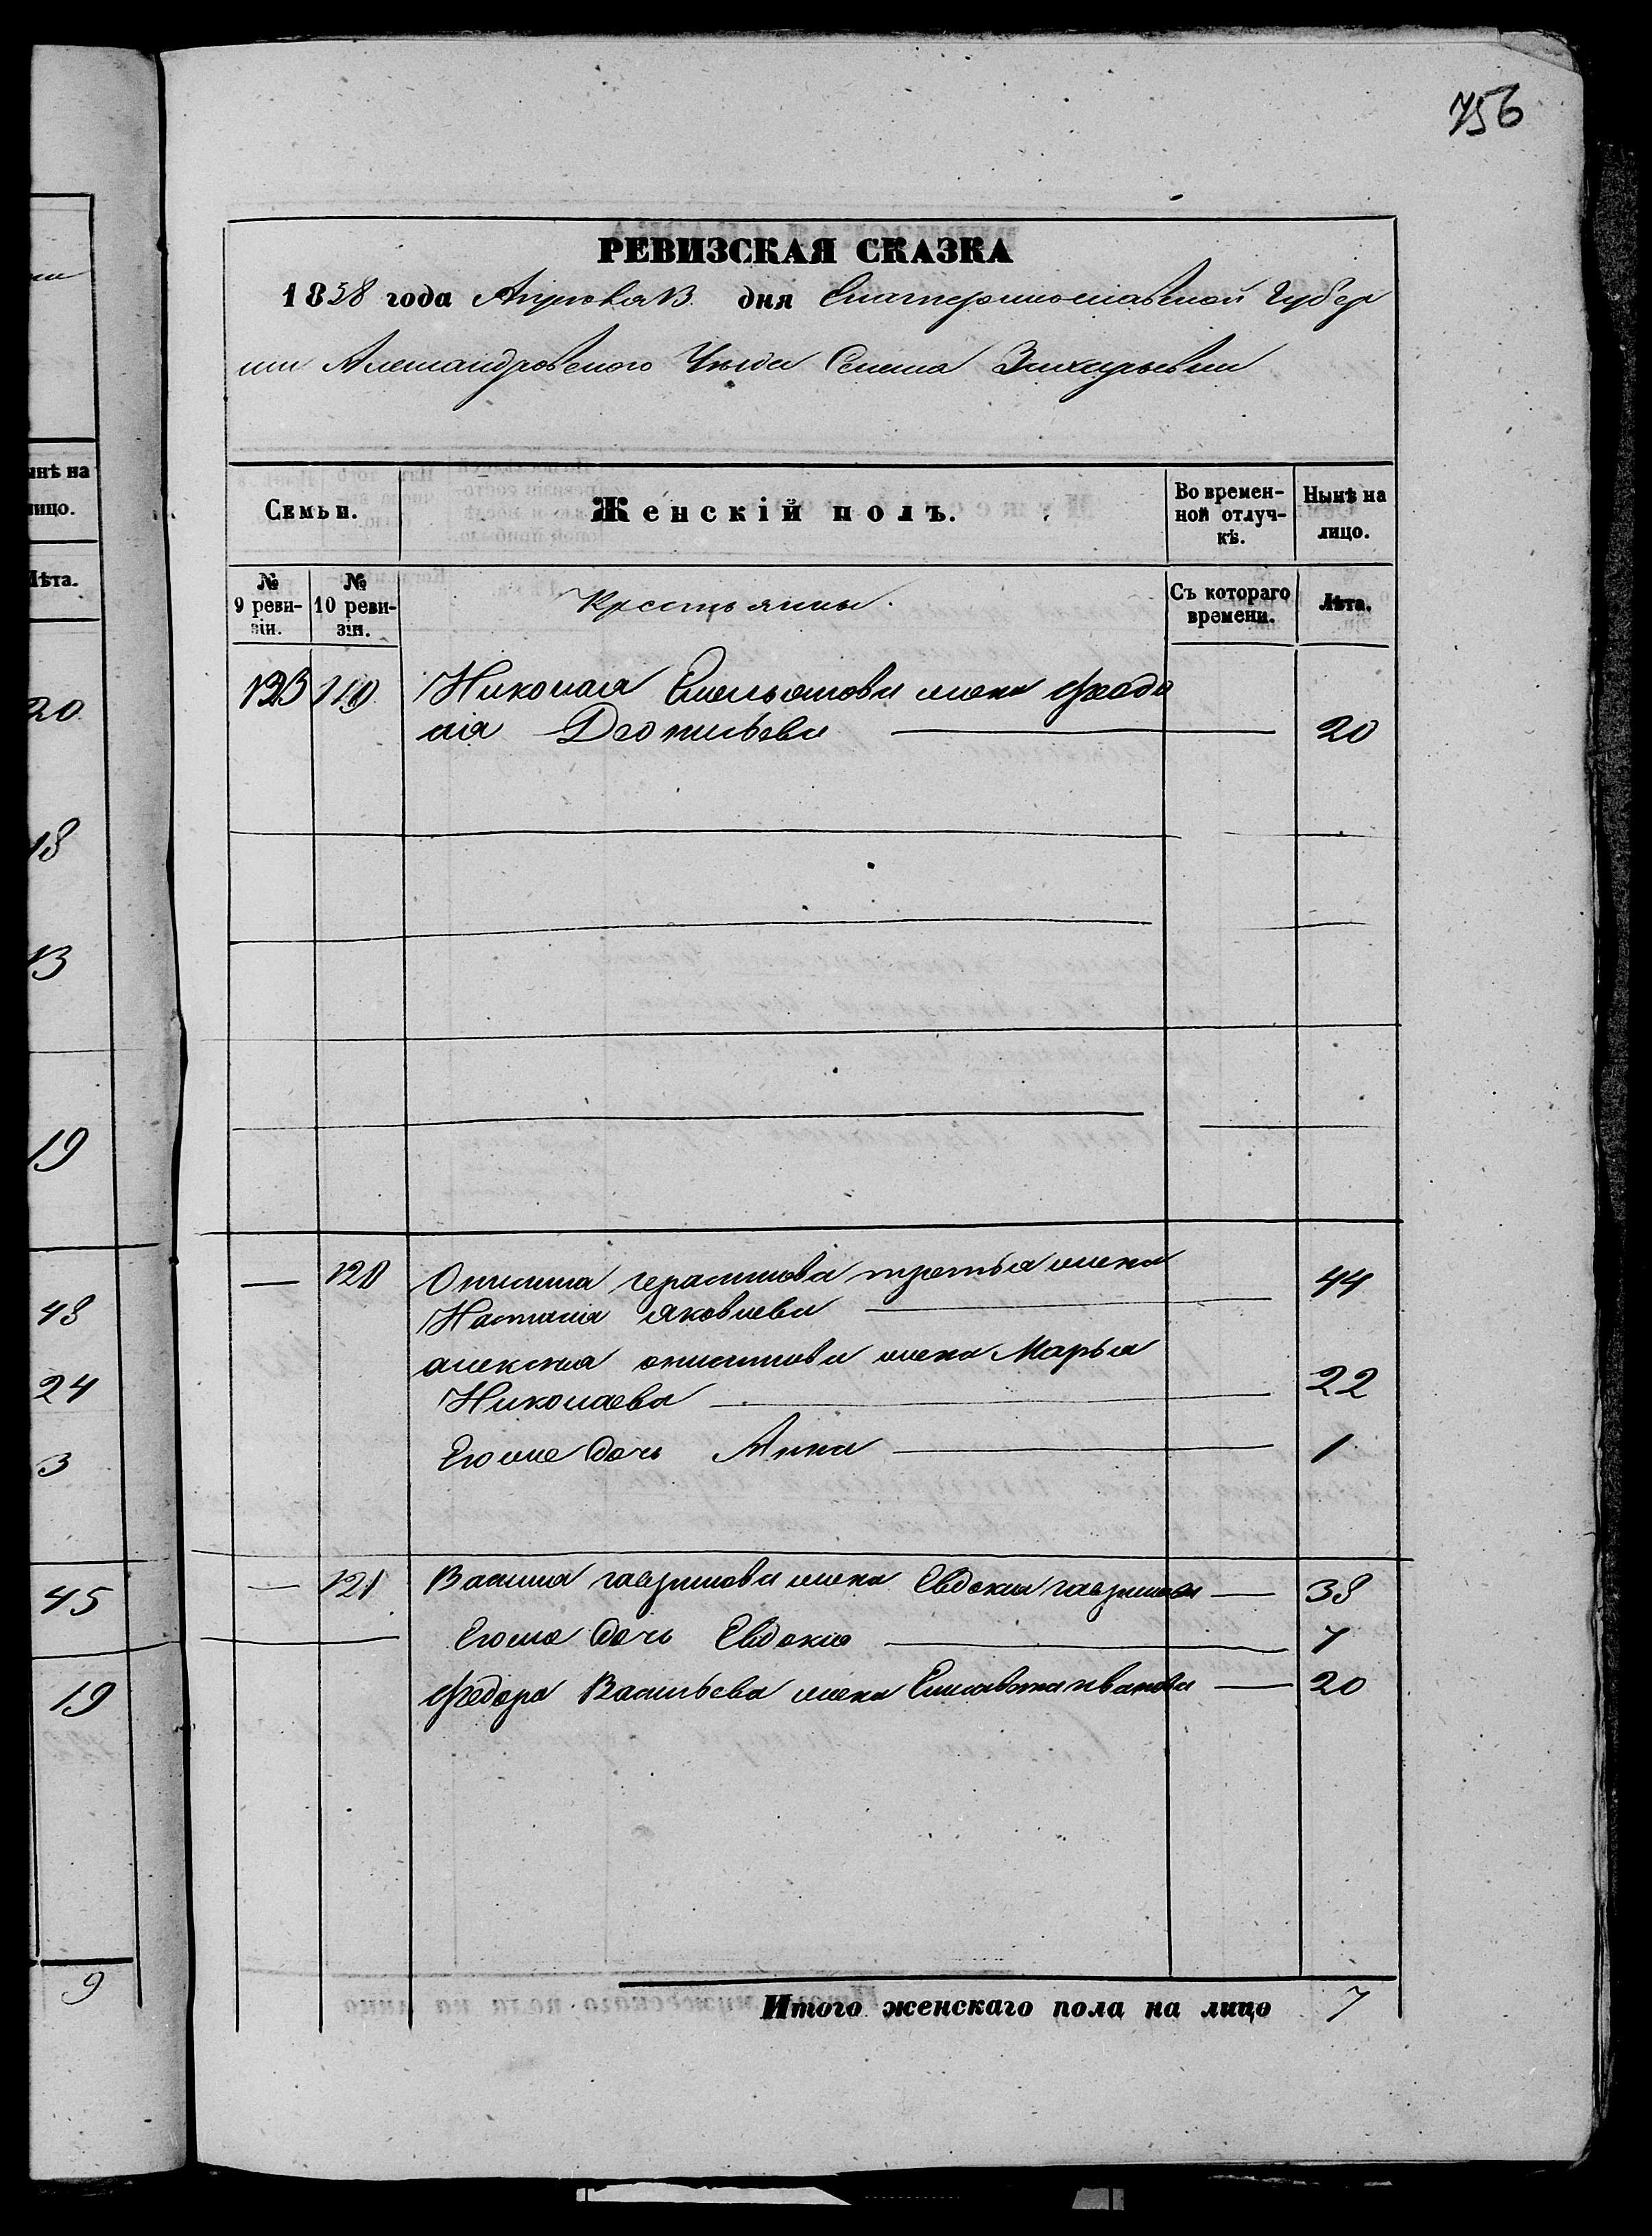 756
РЕВИЗСКАЯ СКАЗКА
1858 года Апреля 13 дня Екатеринославской Губер
нии Александровского Уезда Селена Захарьевки
Семьи.
Женскій полъ.
Во времен-
ной отлуч-
кѣ.
Нынѣ на
лицо.
№
9 реви-
зіи.
№
10 реви-
зіи.
Крестьянны.
Съ котораго
времени.
Лѣта.
123 119 Николая Емельянова жена Феодо
сія Леонтьева — 20
— 120 Онисима герасимова третья жена 44
Наталія яковлева —
алексея онисимова жена Марья
Николаева — 22
Егоже дочь Анна — 1
— 121 Василия гаврилова жена Евдокия гаврилова — 38
Егоже дочь Евдокия — 7
Федора Васильева жена Елисавета иванова — 20
Итого женскаго пола на лицо 7
ынѣ на
лицо.
Лѣта.
20
18
13
19
48
24
3
45
19
9